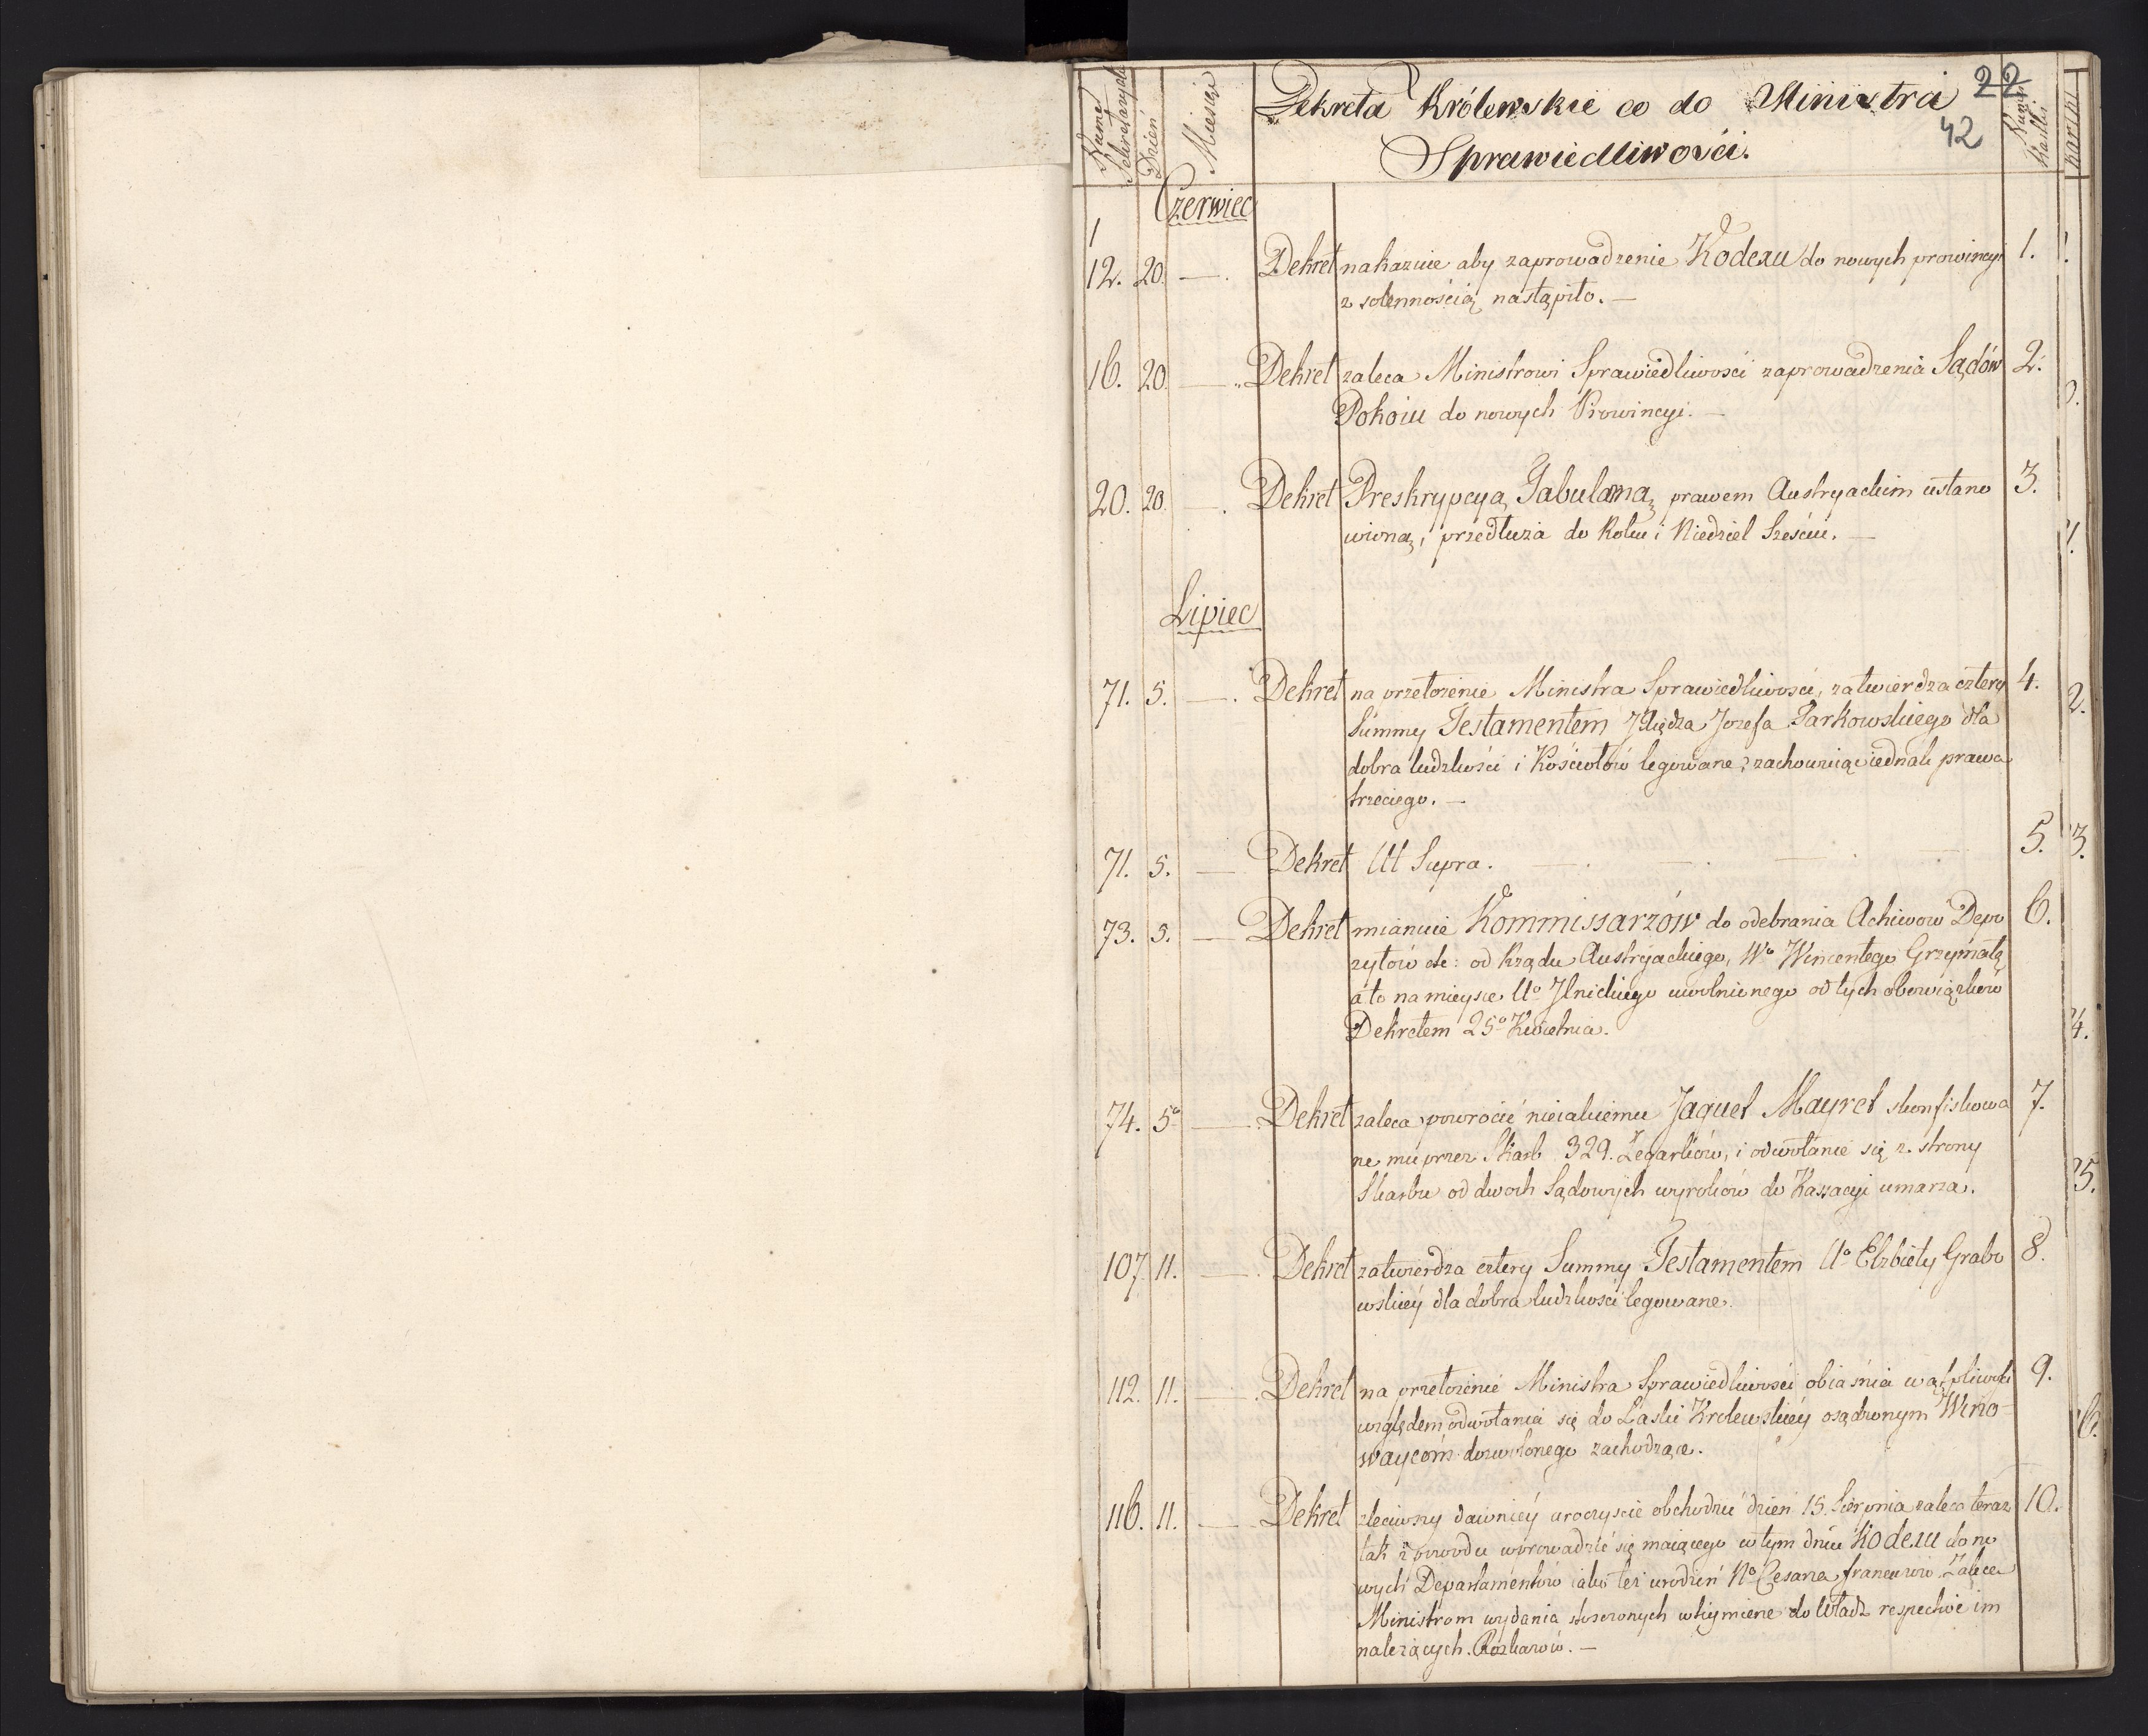 Numer Sekretaryatu
Dzień
Miesiąc
Dekreta Królewskie co do Ministra
Sprawiedliwości.
22
42
Kartki
Czerwiec
1
12. 20. — . Dekret nakazuie aby zaprowadzenie Kodexu do nowych prowincyi 1.
z solennością nastąpiło. —
16. 20. — Dekret zaleca Ministrowi Sprawiedliwości zaprowadzenia Sądów 2.
Pokoiu do nowych Prowincyi. —
20. 20. — . Dekret Preskrypcyą Tabularną prawem Austryackim ustano 3.
wioną, przedłuża do Roku i Niedziel Sześciu. —
Lipiec
71. 5. — . Dekret na przełożenie Ministra Sprawiedliwości, zatwierdza cztery 4.
Summy Testamentem Xiędza Jozefa Tarkowskiego dla
dobra ludzkości i Kościołów legowane, zachowuiąc iednak prawa
trzeciego. —
71. 5. — Dekret Ut Supra. — . — . — . — 5.
73. 5. — Dekret mianuie Kommissarzów do odebrania Achiwow Depo 6.
zytów etc: od Rządu Austryackiego, Wo Wincentego Grzymałę
a to na mieysce Uo Ilnickiego uwolnionego od tych obowiązkow
Dekretem 25o Kwietnia.
74. 5o — . Dekret zaleca powrocić nieiakiemu Jaquet Mayret skonfiskowa 7.
ne mu przez Skarb 329. Zegarków, i odwołanie się z strony
Skarbu od dwoch Sądowych wyroków do Kassacyi umarza.
107. 11. — . Dekret zatwierdza cztery Summy Testamentem Uo Elzbiety Grabo 8.
wskiey dla dobra ludzkości legowane.
112. 11. — . Dekret na przełożenie Ministra Sprawiedliwości obiaśnia wątpliwości 9.
względem odwołania się do Łaski Krolewskiey osądzonym Wino-
waycom dozwolonego zachodzące.
116. 11. — Dekret zleciwszy dawniey uroczyscie obchodzić dzień 15. Sierpnia zaleca teraz 10.
tak z powodu wprowadzić się maiącego w tym dniu Kodexu do no
wych Departamentów iako też urodzin No Cesarza francuzow. Zaleca
Ministrom wydania stosownych w tey mierze do Władz respective im
należących Rozkazów. —